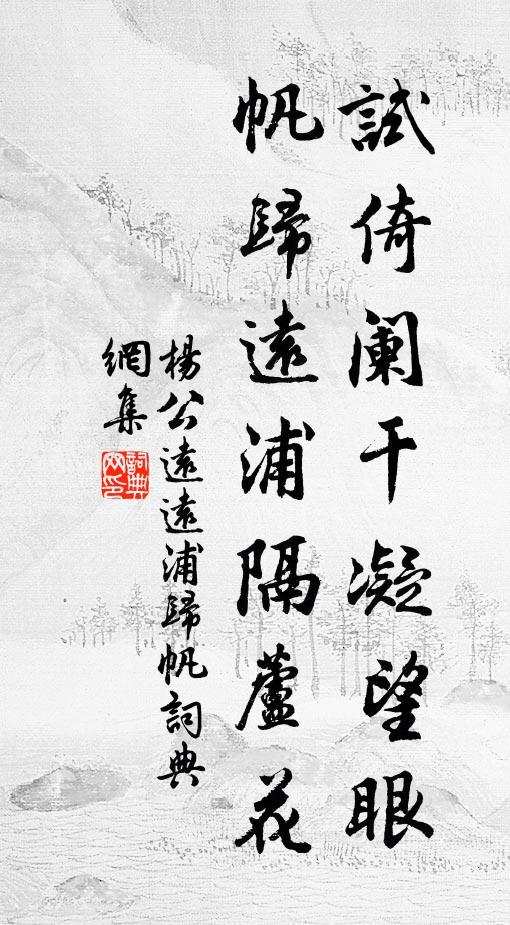 試倚闌干凝望眼
帆歸遠浦隔蘆花
楊公遠遠浦歸帆詞典
網集
詞典網印